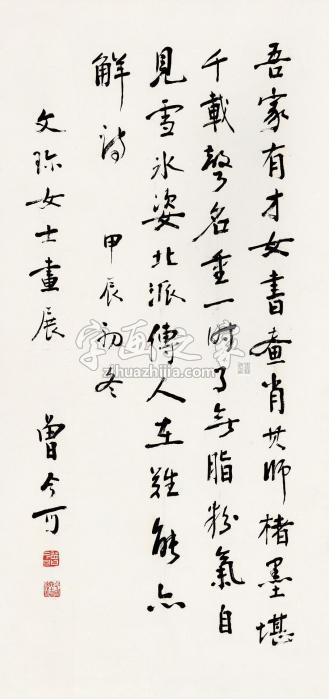 吾家有才女書畫肖其師楮墨堪
千載聲名重一時了無脂粉氣自
見雪冰姿北派傳人在難能亦
解詩 甲辰初冬
文珍女士畫展
曾今可
字画之家
zihuazhijia.com